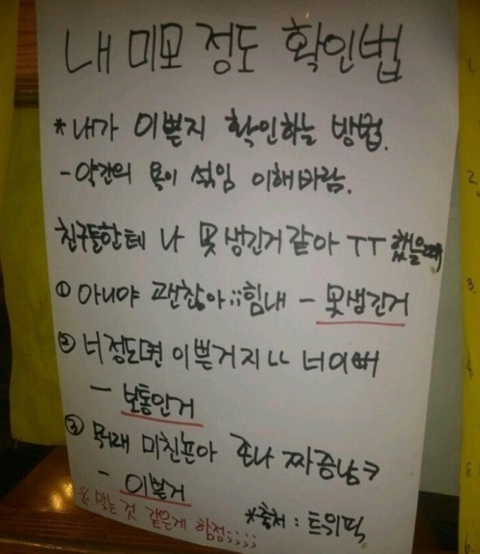 내 미모 정도 확인법
* 내가 이쁜지 확인하는 방법.
- 약간의 욕이 섞임 이해바람.
친구들한테 나 못생긴거같아 ㅜㅜ 했을때
① 아니야 괜찮아;; 힘내 - 못생긴거
② 너정도면 이쁜거지 ㄴㄴ 너이뻐
- 보통인거
③ 뭐래 미친년아 존나 짜증남ㅋ
- 이쁜거
※ 맞는 것 같은게 함정;;;;
*출처 : 트위픽
1.
2.
3.
4.